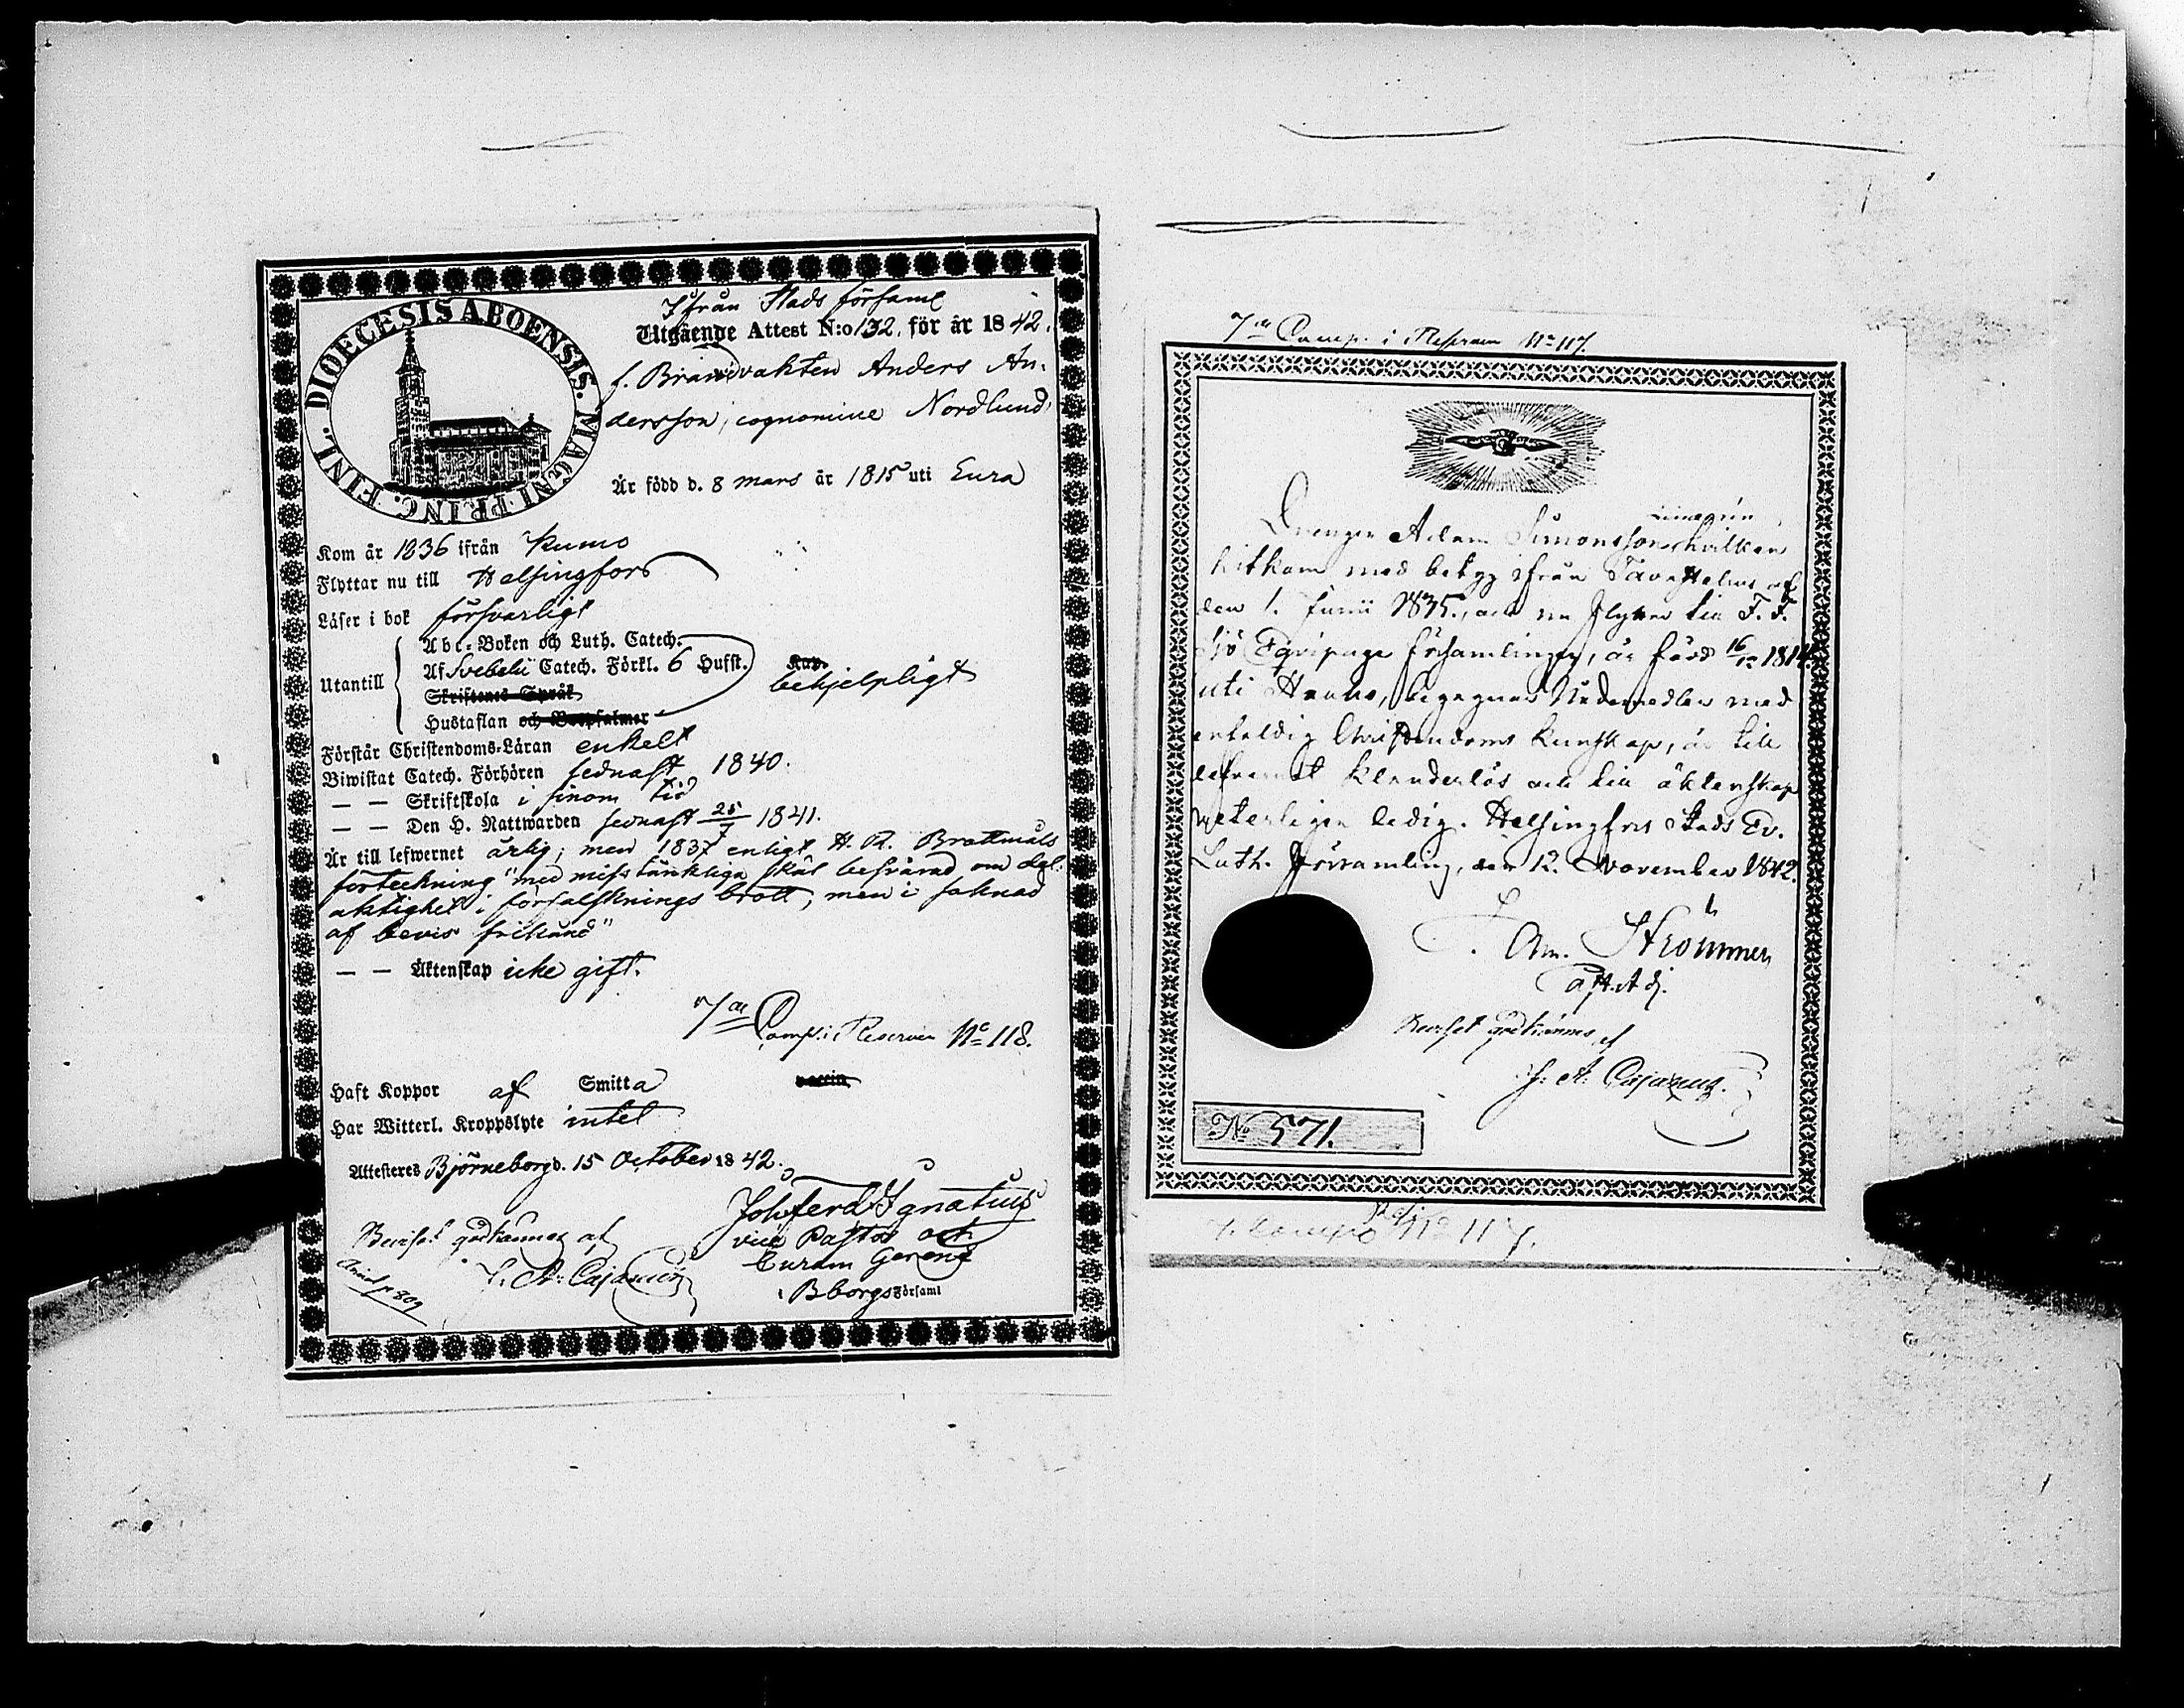 DIOECESIS ABOENSIS. MAGNI PRINC. FINL.
Ifrån Stads församl
Utgående Attest N:o 132. för år 1842.
f. Brandvakten Anders An-
dersson, cognomine Nordlund,
Är född d. 8 mars år 1815 uti Eura
Kom år 1836 ifrån Kumo
Flyttar nu till Helsingfors
Läser i bok försvarligt
Utantill
Abc-Boken och Luth. Catech.
Af Svebelii Catech. Förkl. 6 Hufst.
Skriftenes Språk
Hustaflan och Botpsalmer
behjelpligt
Förstår Christendoms-Läran enkelt
Biwistat Catech. Förhören sednast 1840.
— — Skriftskola i sinom tid
— — Den H. Nattwarden sednast 25/7 1841.
Är till lefwernet ärlig; men 1837 enligt H. R. Brottmåls
förteckning "med misstänkliga skäl besvärad om del-
aktighet i förfalsknings brott, men i saknad
af bevis frikänd"
— — Äktenskap icke gift.
7de Comp: i Reserven No 118.
Haft Koppor af Smitta vaccin
Har Witterl. Kroppslyte intet
Attesteras Björneborg d. 15 October 1842.
Joh. Ferd. Ignatius
vice Pastor och
Curam Gerens
i Bborgs Församl
Beviset godkännes af
J. A: Cajanus

7de Comp. i Reserven No 117.
Drengen Adam Simonsson hvilken
hitkom med betyg ifrån Tavastehus af
den 1. Junii 1835., och nu flyttar till F. F.
Sjö Equipage församlingen, är född 16/12 1814
uti Hauho, begagnar Nådemedlen med
enfaldig Christendoms kunskap, är till
lefvernet klanderlös och till äktenskap
veterligen ledig. Helsingfors Stads Ev.
Luth. Församling, den 12. November 1842.
Strömmer
Past. Adj.
Beviset godkännes af
J: A: Cajanus.
No 571.
7. Comp No 117.